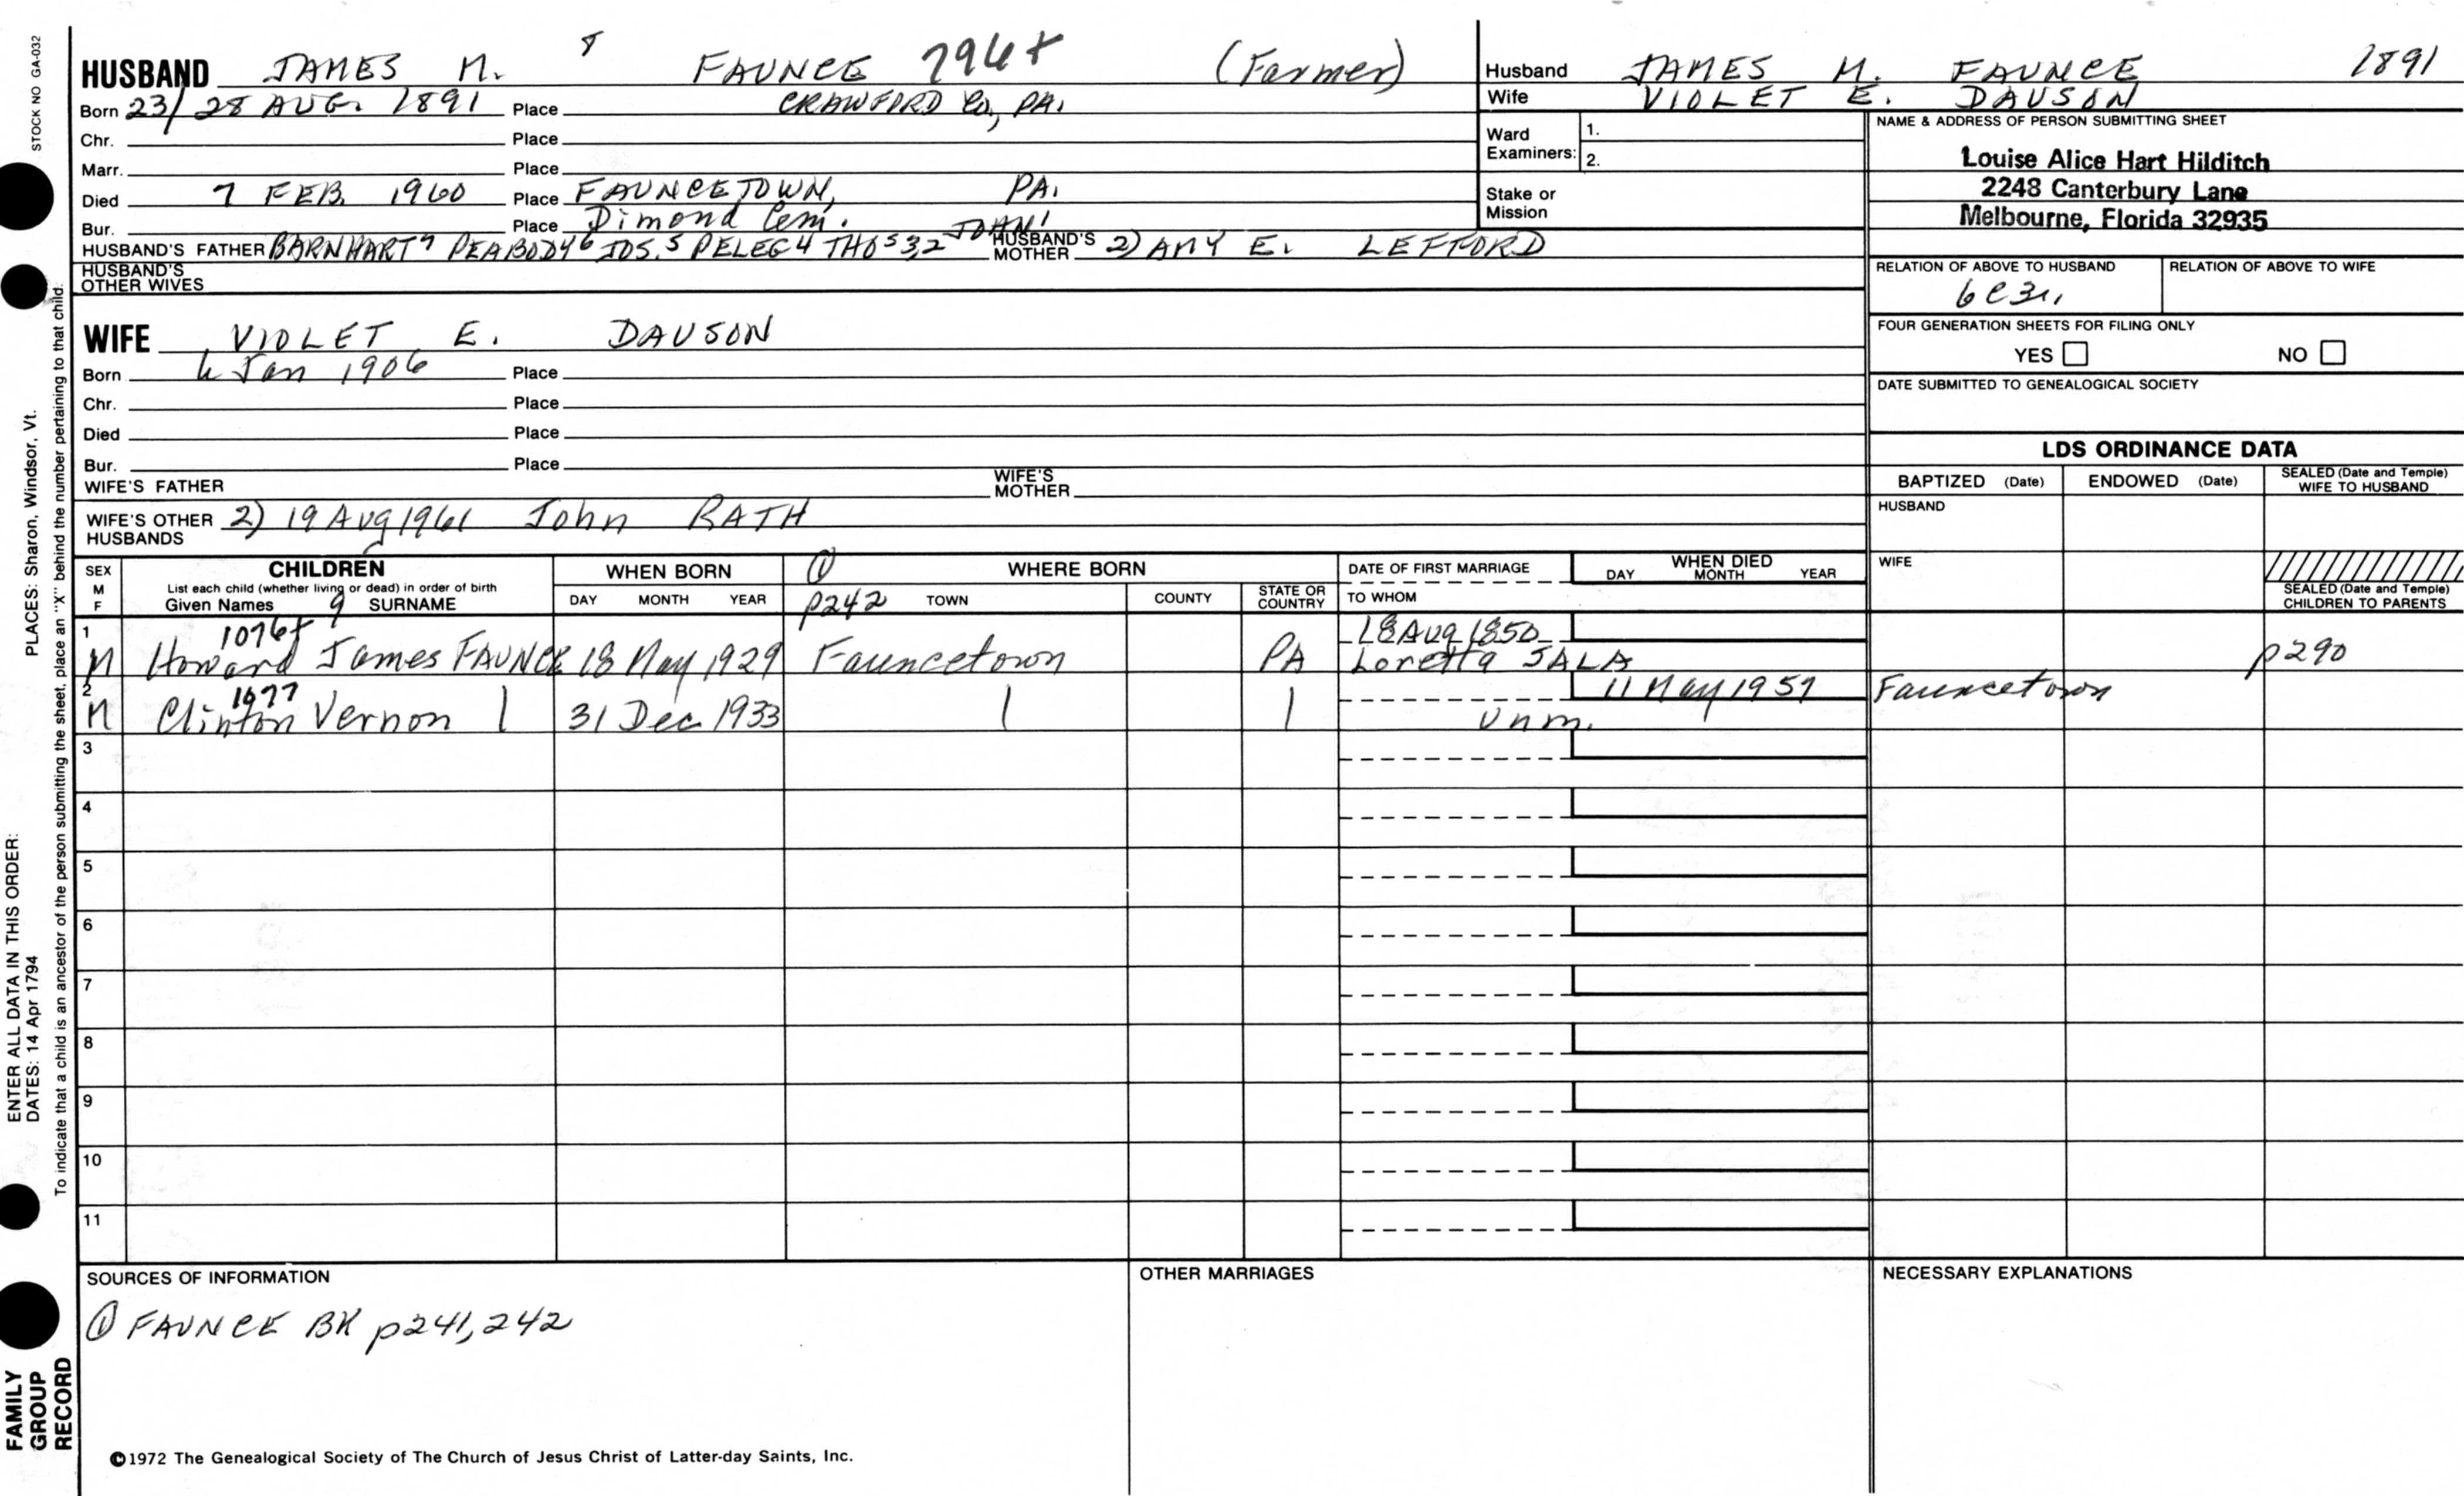 STOCK NO GA-032
PLACES: Sharon, Windsor, Vt.
ENTER ALL DATA IN THIS ORDER:
DATES: 14 Apr 1794
To indicate that a child is an ancestor of the person submitting the sheet, place an "X" behind the number pertaining to that child.
FAMILY GROUP RECORD
HUSBAND JAMES M. 8 FAUNCE 794+ (Farmer)
Born 23/28 AUG. 1891 Place CRAWFORD Co, PA.
Chr. Place
Marr. Place
Died 7 FEB. 1960 Place FAUNCETOWN, PA.
Bur. Place Dimond Cem.
HUSBAND'S FATHER BARNHART7 PEABODY6 JOS.5 PELEG4 THOS32 JOHN1 HUSBAND'S MOTHER 2) AMY E. LEFFORD
HUSBAND'S OTHER WIVES
WIFE VIOLET E. DAUSON
Born 4 Jan 1906 Place
Chr. Place
Died Place
Bur. Place
WIFE'S FATHER WIFE'S MOTHER
WIFE'S OTHER HUSBANDS 2) 19 Aug 1961 John RATH
Husband JAMES M. FAUNCE 1891
Wife VIOLET E. DAUSON
Ward Examiners: 1.
2.
Stake or Mission
NAME & ADDRESS OF PERSON SUBMITTING SHEET
Louise Alice Hart Hilditch
2248 Canterbury Lane
Melbourne, Florida 32935
RELATION OF ABOVE TO HUSBAND RELATION OF ABOVE TO WIFE
6C3r,
FOUR GENERATION SHEETS FOR FILING ONLY
YES NO
DATE SUBMITTED TO GENEALOGICAL SOCIETY
LDS ORDINANCE DATA
BAPTIZED (Date) ENDOWED (Date) SEALED (Date and Temple) WIFE TO HUSBAND
HUSBAND
WIFE
SEALED (Date and Temple) CHILDREN TO PARENTS
SEX M F CHILDREN WHEN BORN ① WHERE BORN DATE OF FIRST MARRIAGE WHEN DIED
List each child (whether living or dead) in order of birth
Given Names 9 SURNAME DAY MONTH YEAR p242 TOWN COUNTY STATE OR COUNTRY TO WHOM DAY MONTH YEAR
1 1076+ 18 Aug 1850
M Howard James FAUNCE 18 May 1929 Fauncetown PA Loretta SALA p290
2 1077 11 May 1957 Fauncetown
M Clinton Vernon | 31 Dec 1933 | | Unm.
3
4
5
6
7
8
9
10
11
SOURCES OF INFORMATION OTHER MARRIAGES NECESSARY EXPLANATIONS
① FAUNCE BK p241,242
©1972 The Genealogical Society of The Church of Jesus Christ of Latter-day Saints, Inc.